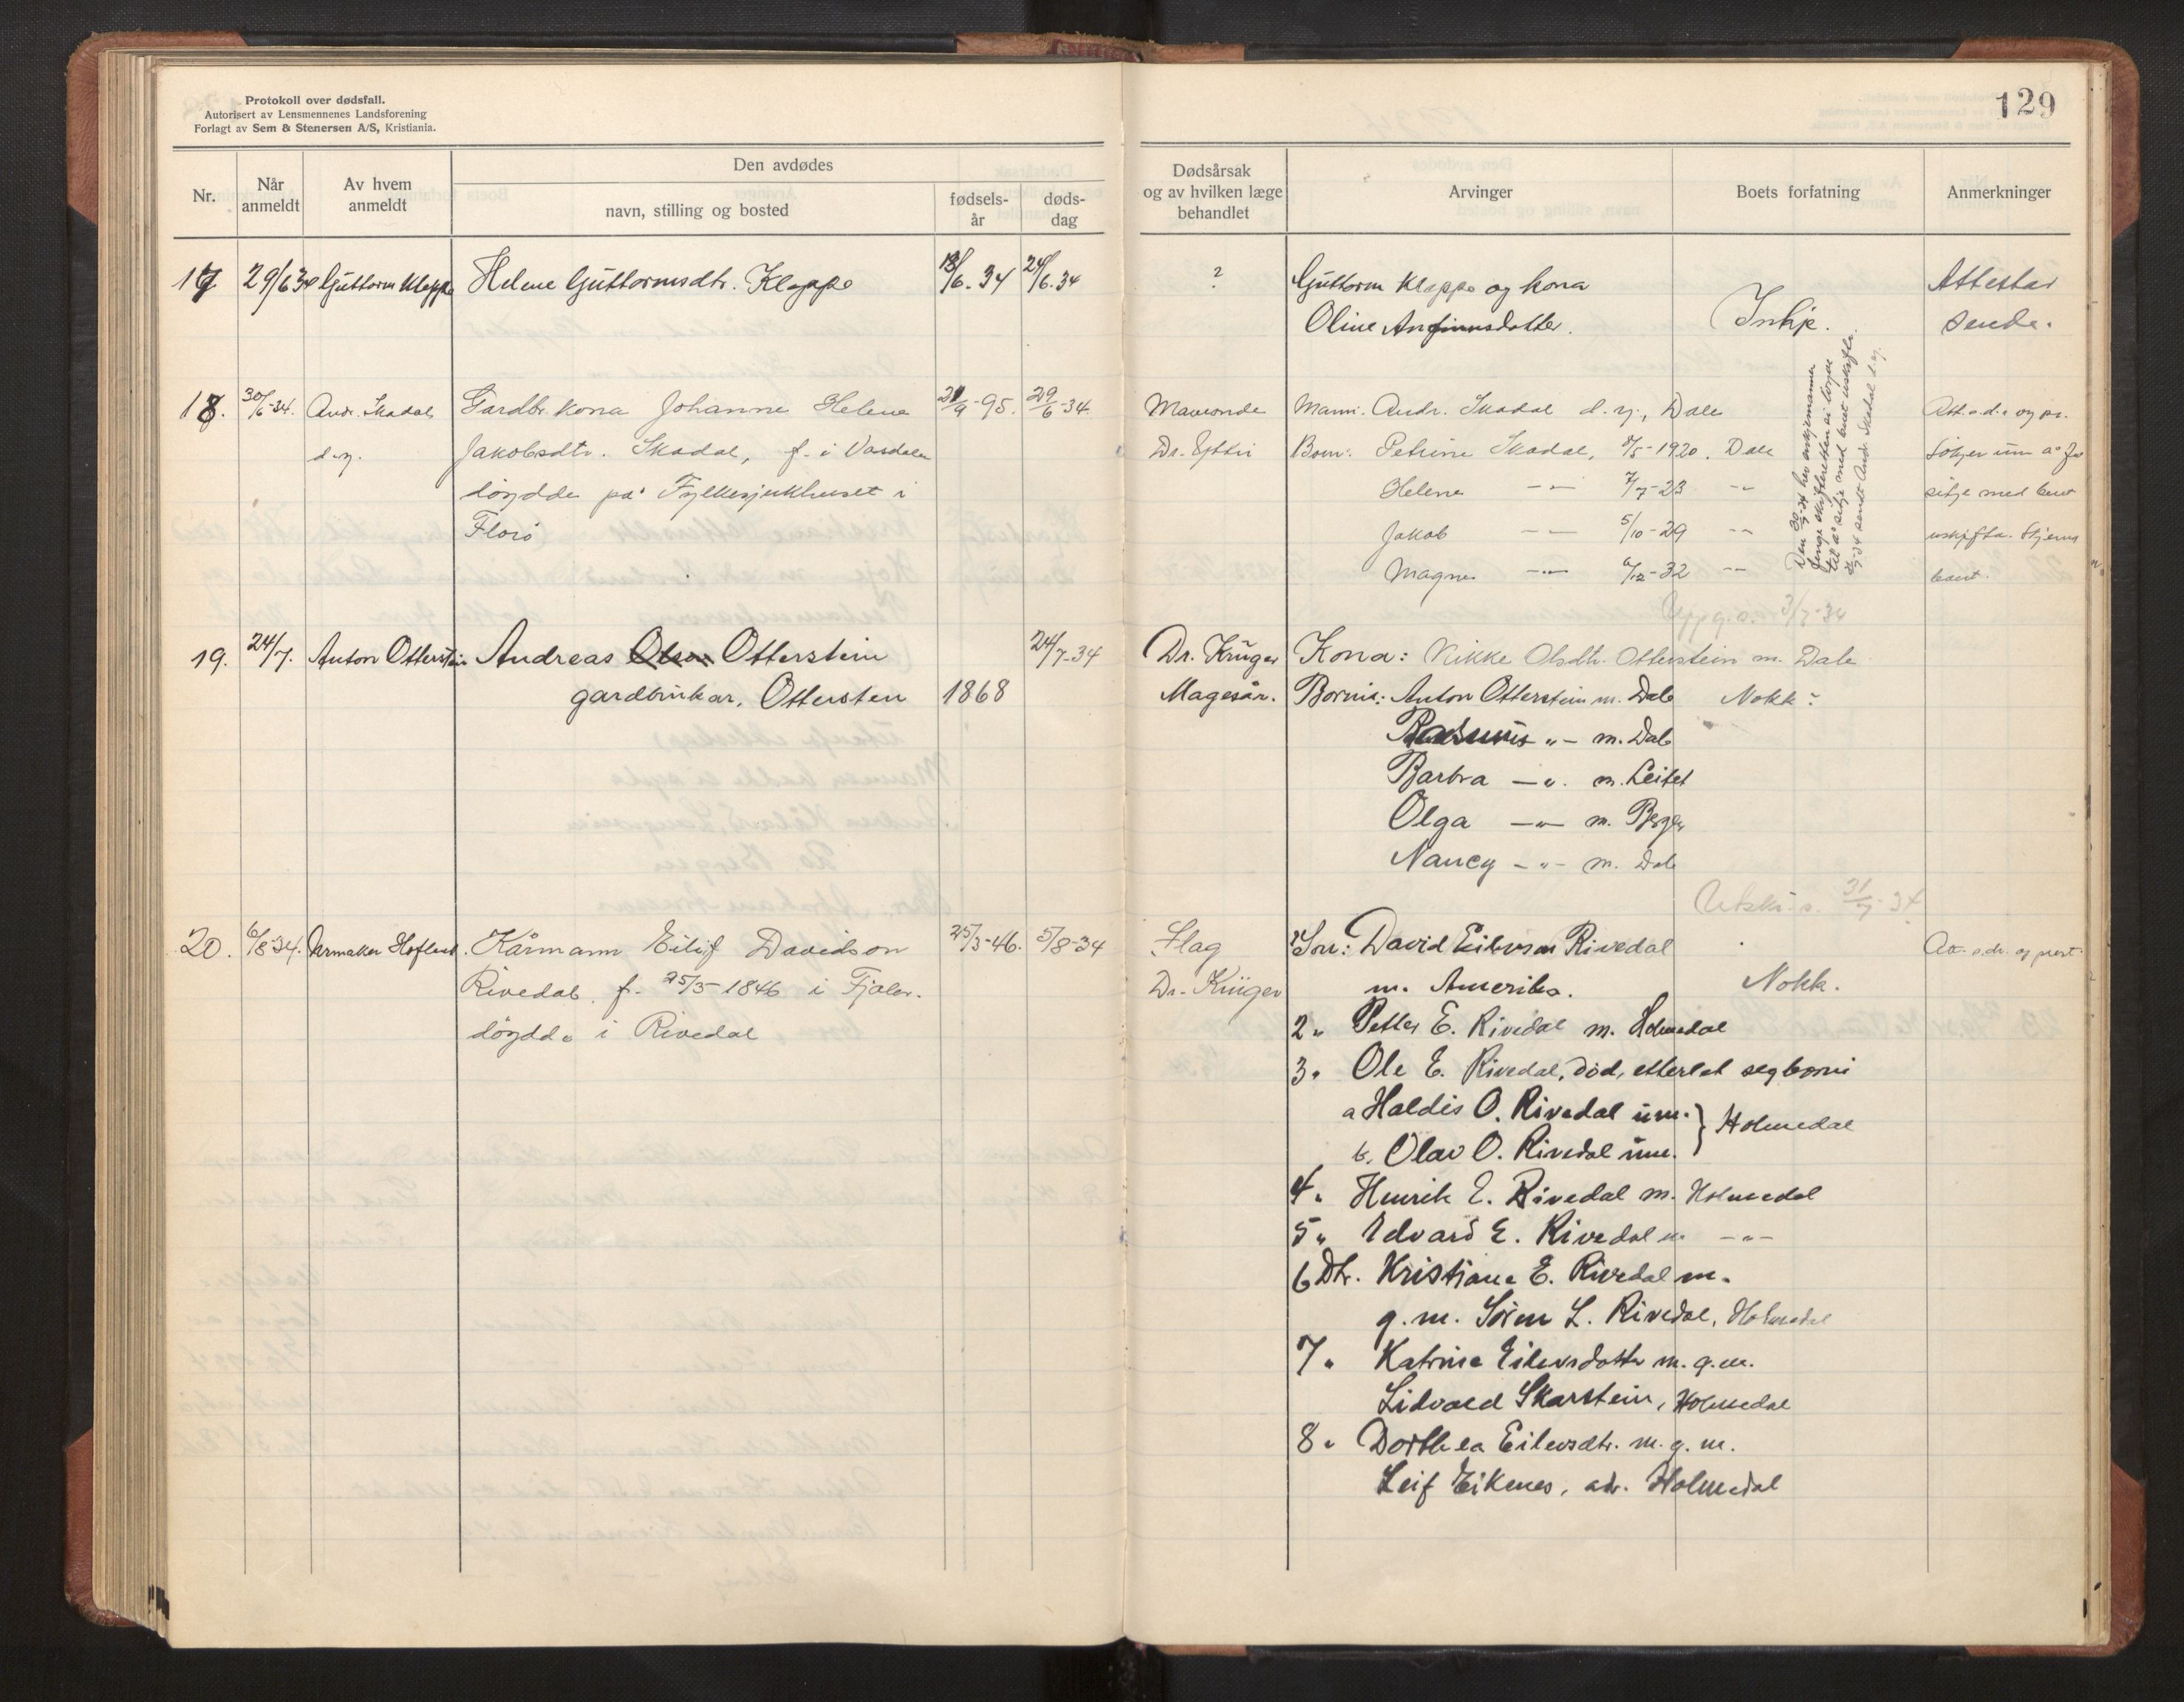 Protokoll over dødsfall.
Autorisert av Lensmennenes Landsforening
Forlagt av Sem & Stenersen A/S, Kristiania.
129
Nr.
Når anmeldt
Av hvem anmeldt
Den avdødes
navn, stilling og bosted
fødsels-år
døds-dag
Dødsårsak og av hvilken læge behandlet
Arvinger
Boets forfatning
Anmerkninger
17 29/6 34 Guttorm Kleppe Helene Guttormsdtr. Kleppe 13/6.34 24/6.34 ? Guttorm Kleppe og kona Attestar
Oline Anfinnsdotter. Inkje. sende.
18. 30/6-34. Andr. Skadal Gardbr.kona Johanne Helene 21/9-95. 29/6-34. Mann: Andr. Skadal d.y., Dale
d.y. Jakobsdtr. Skadal, f. i Vasdalen Born: Petrine Skadal, 1920. Dale
døydde på Fylkessjukhuset i Helene -"- 7/7-23 -"- sitje med buet
Florø Jakob -"- 5/10-29 -"- uskifta.
Magne -"- 6/12-32 -"- buet.
3/7-34
19. 24/7. Anton Otterstein Andreas Olsen Otterstein 24/7-34 Dr. Krüger Kona: Rikke Olsdtr. Otterstein m. Dale
gardbrukar, Ottersten 1868 Magesår. Borni: Anton Otterstein m. Dale Nokk:
Rasmus -"- m. Dale
Barbra -"- m. Leitet
Olga -"- m. Berge
Nancy -"- m. Dale
Utskr. s. 31/7-34
20. 6/8-34. Kårmann Eilif Davidson 25/3-46. 5/8-34 Slag 1 Son: David Eilevson Rivedal
Rivedal. f. 25/3-1846 i Fjaler. Dr. Krüger m. Amerika. Nokk.
døydde i Rivedal
2 " Petter E. Rivedal m. Holmedal
3 " Ole E. Rivedal, død, etterlet seg borni
a Haldis O. Rivedal um. } Holmedal
b. Olav O. Rivedal um.
4 " Henrik E. Rivedal m. Holmedal
5 " Edvard E. Rivedal m -"-
6 Dtr. Kristiane E. Rivedal m.
g.m. Søren L. Rivedal, Holmedal
7 " Katrine Eilevsdotter m. g.m.
Lidvard Skarstein, Holmedal
8 " Dorthea Eilevsdtr. m. g. m.
Leif Eikenes, adr. Holmedal